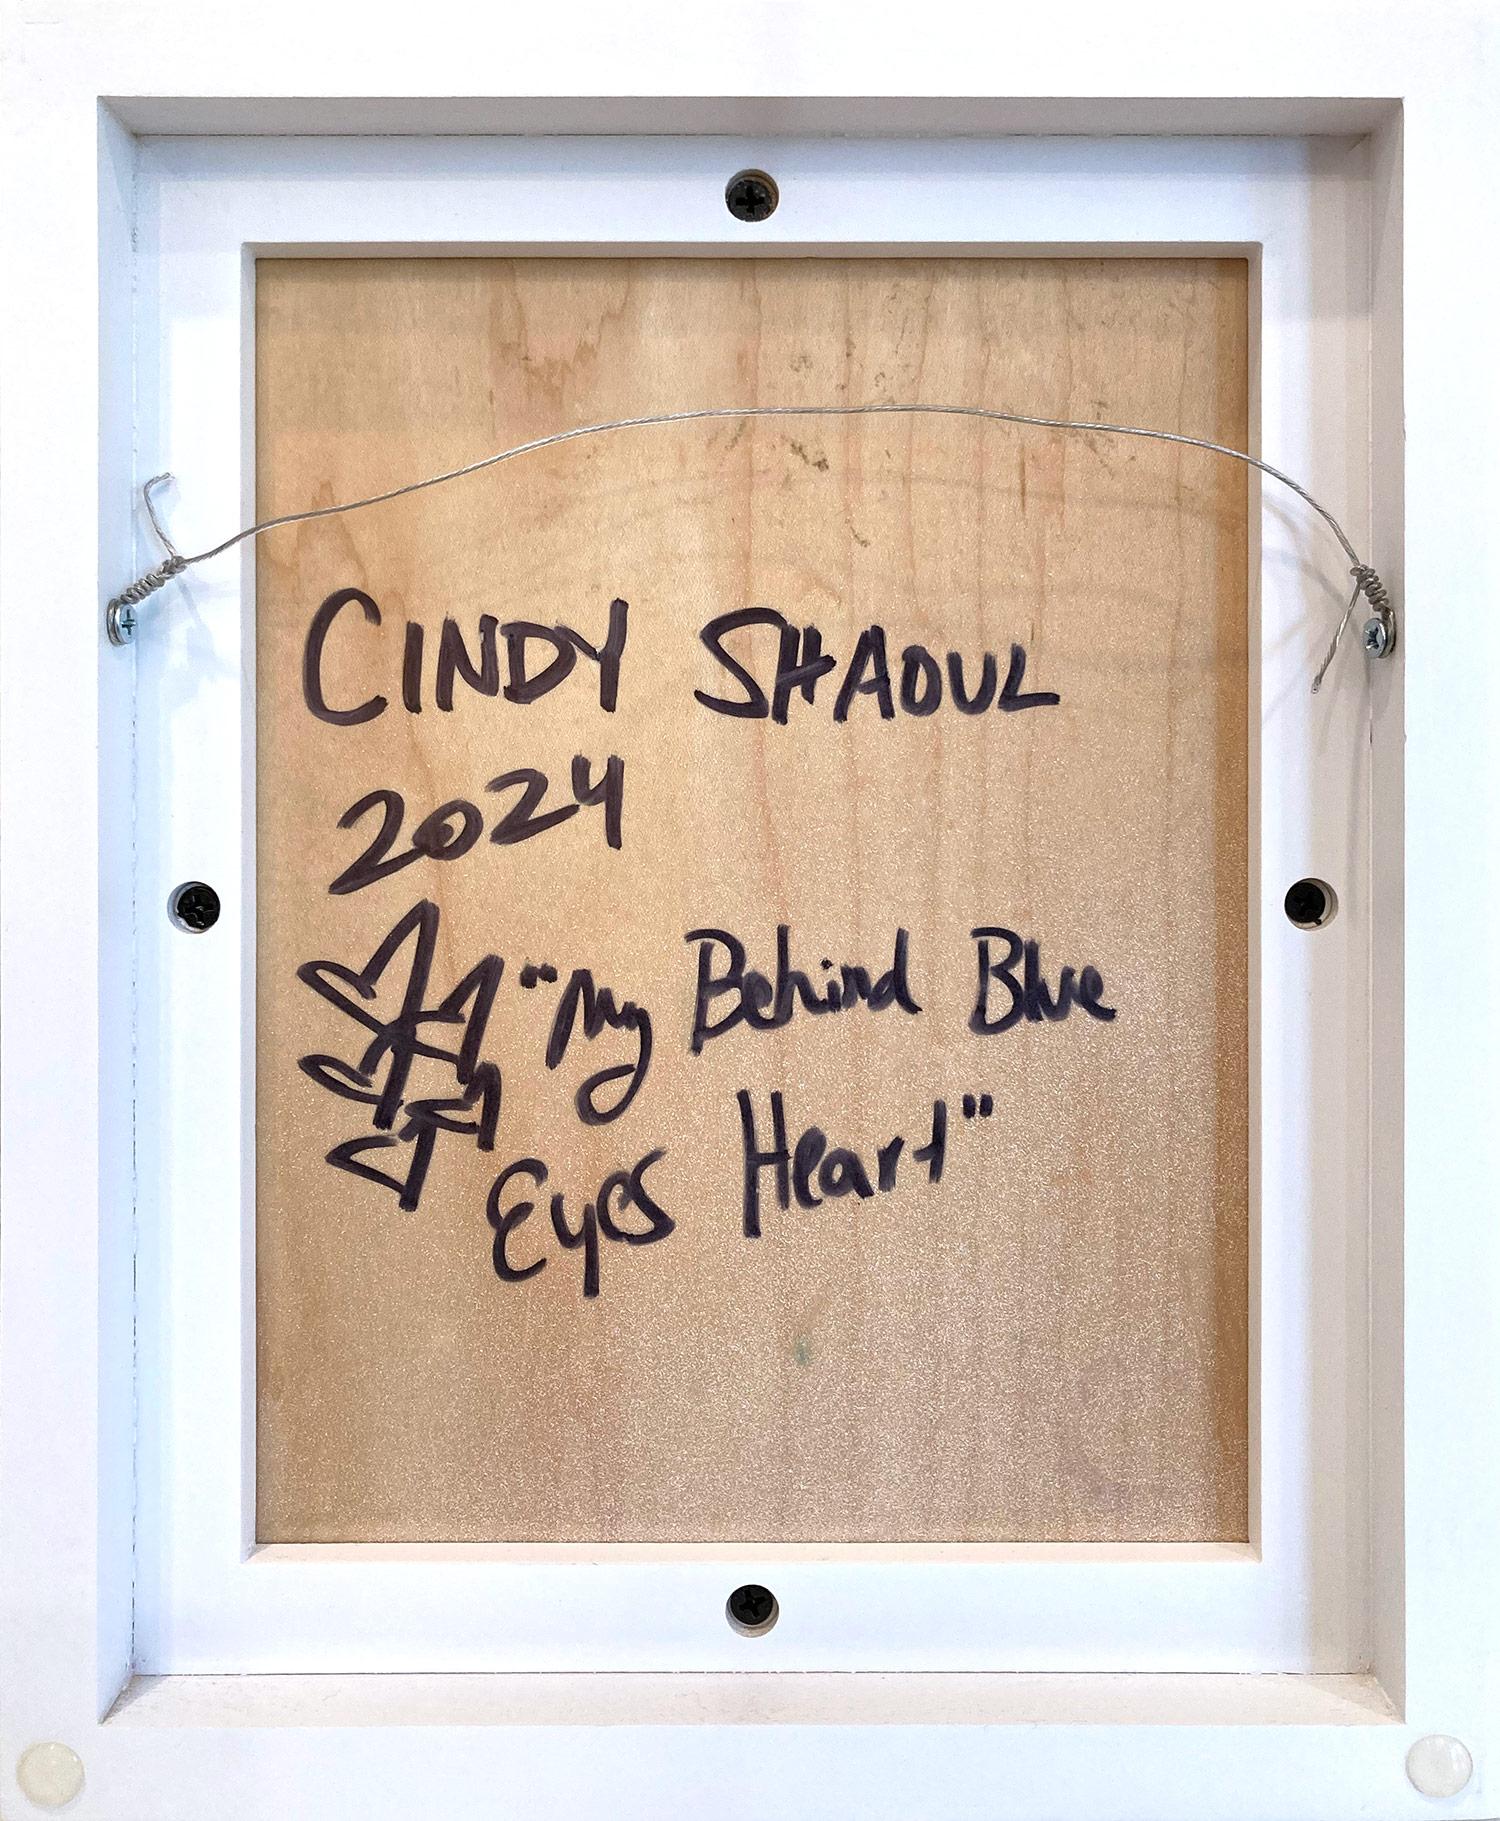 CINDY SHAOUL
2024
"My Behind Blue
Eyes Heart"